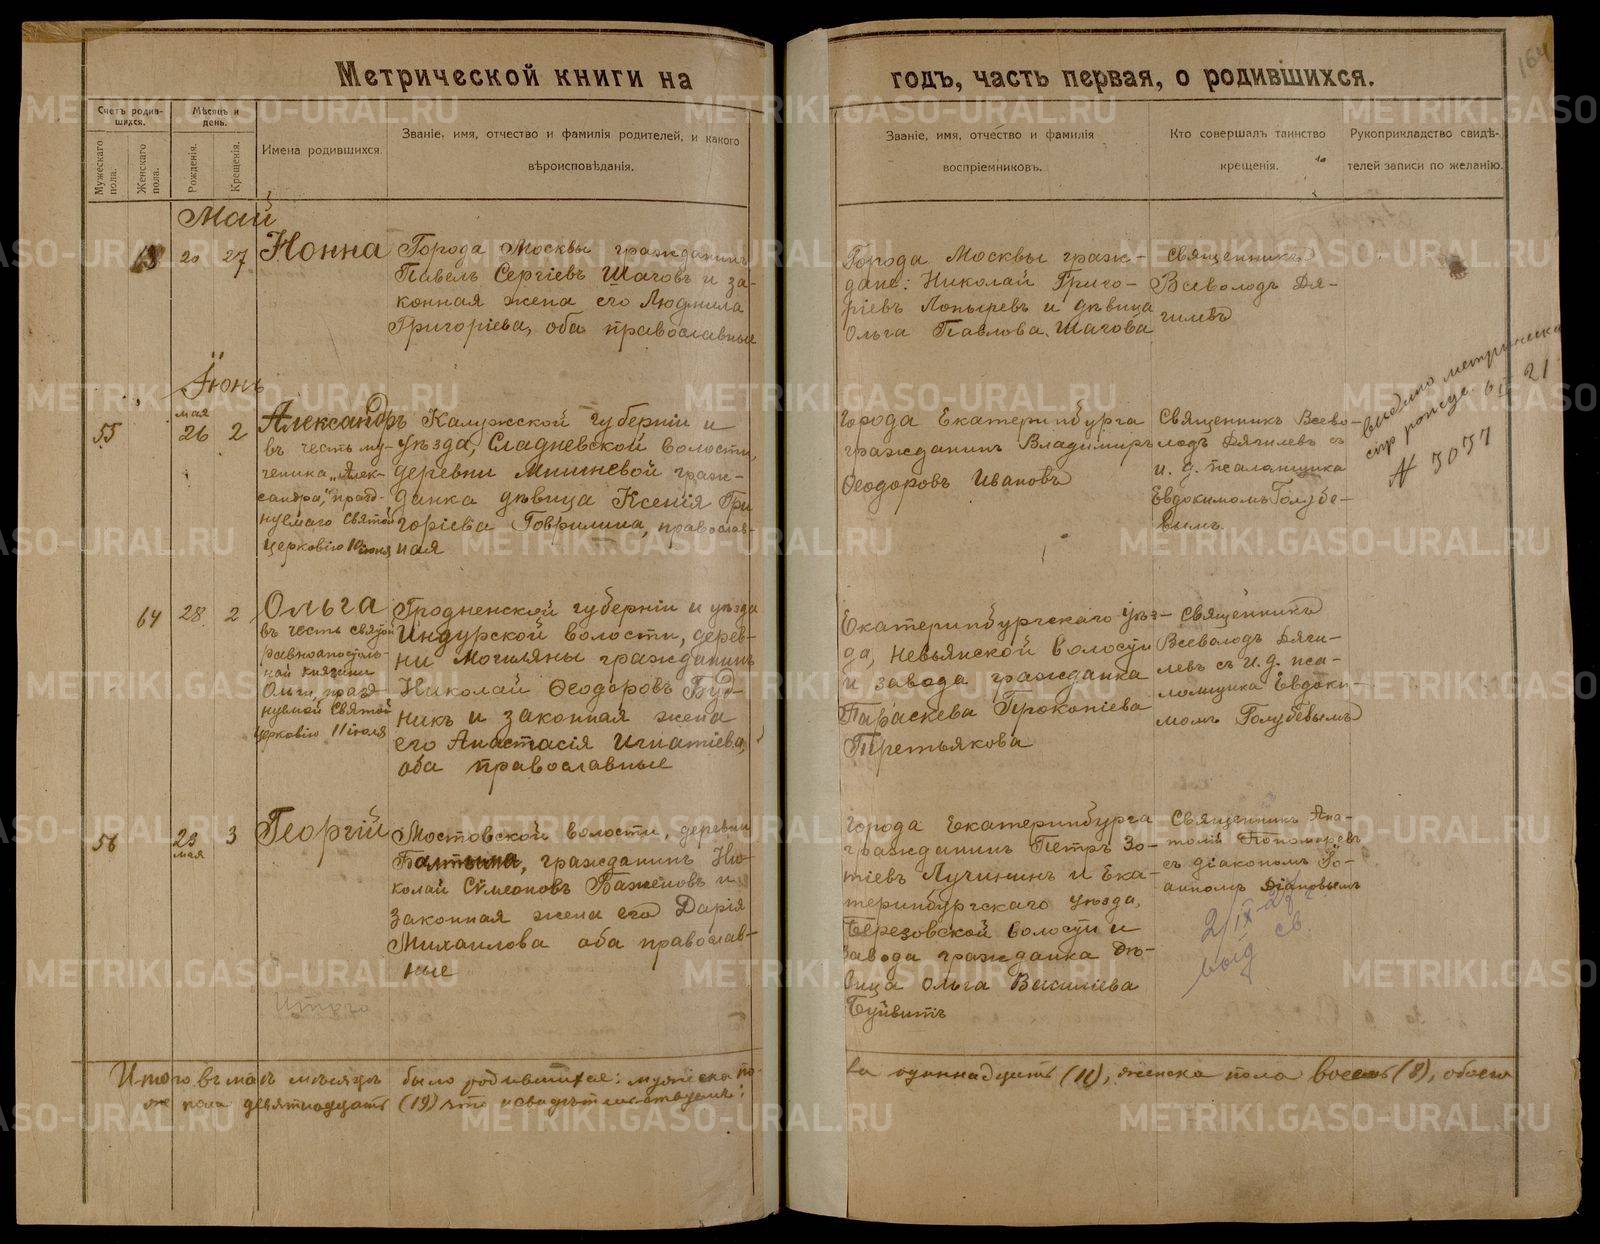 164
Метрической книги на
годъ, часть первая, о родившихся.
Счетъ родив-
шихся.
Мѣсяцъ и
день.
Мужескаго
пола.
Женскаго
пола.
Рожденія.
Крещенія.
Имена родившихся.
Званіе, имя, отчество и фамилія родителей, и какого
вѣроисповѣданія.
Званіе, имя, отчество и фамилія
воспріемниковъ.
Кто совершалъ таинство
крещенія.
Рукоприкладство свидѣ-
телей записи по желанію.
Май
20 27 Нонна
Города Москвы гражданинъ
Павелъ Сергіевъ Шаговъ и за-
конная жена его Людмила
Григоріева, оба православные
Города Москвы граж-
дане: Николай Григо-
ріевъ Лопыревъ и дѣвица
Ольга Павлова Шагова
Священникъ
Всеволодъ Дя-
гилевъ
Іюнь
55
мая
26 2
Александръ
въ честь му-
ченика „Алек-
сандра", празд-
нуемаго Святой
церковію 10 іюня
Калужской губерніи и
уѣзда, Сладневской волости,
деревни Мишневой граж-
данка дѣвица Ксенія Гри
горіева Гаврилина, православ-
ная
Города Екатеринбурга
гражданинъ Владимиръ
Ѳеодоровъ Ивановъ
Священникъ Всево-
лодъ Дягилевъ съ
и. д. псаломщика
Евдокимомъ Голубе-
вымъ.
Выдано метрическа
№ 5057
64 28 2
Ольга
въ честь святой
равноапостоль-
ной княгини
Ольги, празд-
нуемой Святой
церковію 11 іюля
Гродненской губерніи и уѣзда
Индурской волости, дерев-
ни Могиляны гражданинъ
Николай Ѳеодоровъ Буд-
никъ и законная жена
его Анастасія Игнатіева,
оба православные
Екатеринбургскаго уѣз-
да, Невьянской волости
и завода гражданка
Параскева Прокопіева
Третьякова
Священникъ
Всеволодъ Дяги-
левъ съ и. д. пса-
ломщика Евдоки-
момъ Голубевымъ
56 23 3
мая
Георгій
Мостовской волости, деревни
гражданинъ Ни-
колай Сѵмеоновъ Баженовъ и
законная жена его Дарія
Михаилова оба православ-
ные
Города Екатеринбурга
гражданинъ Петръ Зо-
тіевъ Лучининъ и Ека-
теринбургскаго уѣзда,
Березовской волости и
завода гражданка дѣ-
вица Ольга Василіева
Буйвитъ
Священникъ Ана-
толій Пономаревъ
съ діакономъ
2/IX
выд св.
Итого
Итого въ маѣ мѣсяцѣ было родившихся: мужеска по-
ла одиннадцать (11), женска пола восемь (8), обоего
же пола девятнадцать (19) что и свидѣтельствуемъ:
METRIKI.GASO-URAL.RU